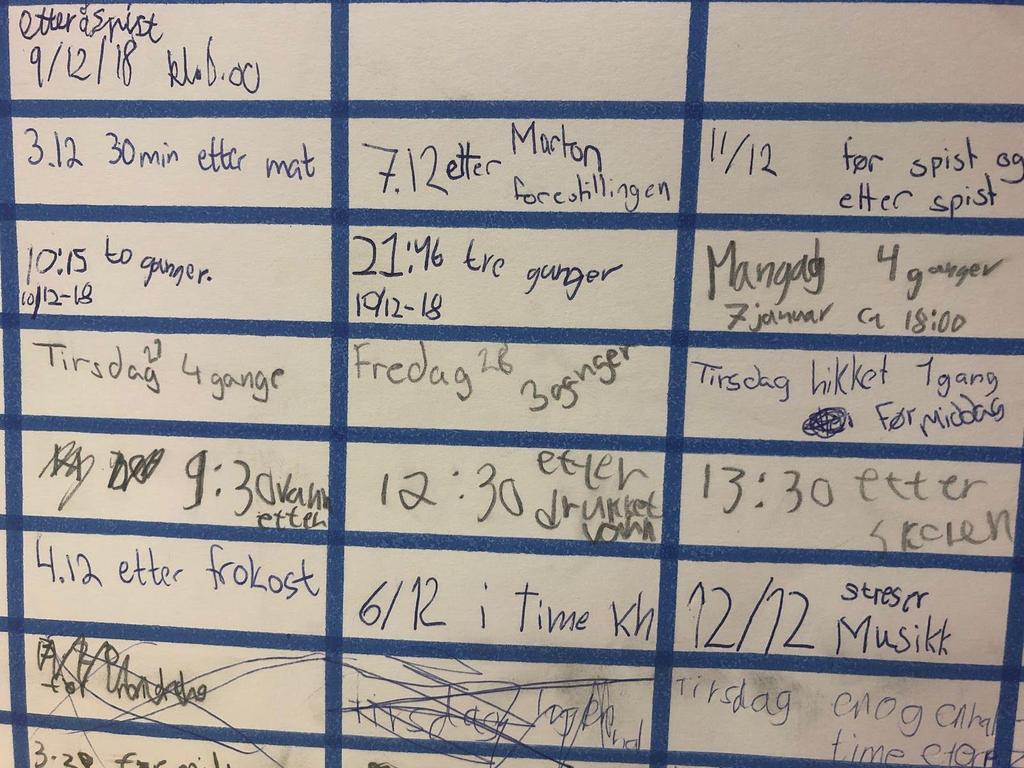 etter å spist
9/12/18 kl.
3.12 30min etter mat
7.12 etter Marton
forestillingen
11/12 før spist og
etter spist
10:15 to ganger.
10/12-18
21:46 tre ganger
19/12-18
Mangag 4 ganger
7 januar ca 18:00
Tirsdag 4 gange
Fredag 28 3 ganger
Tirsdag hikket 1gang
Før Middag
9:30 vann
etter
12:30 etter
drukket
vann
13:30 etter
skolen
4.12 etter frokost
6/12 i time kh
12/12 streser
Musikk
før
Tirsdag
Tirsdag en og enhal-
time etter